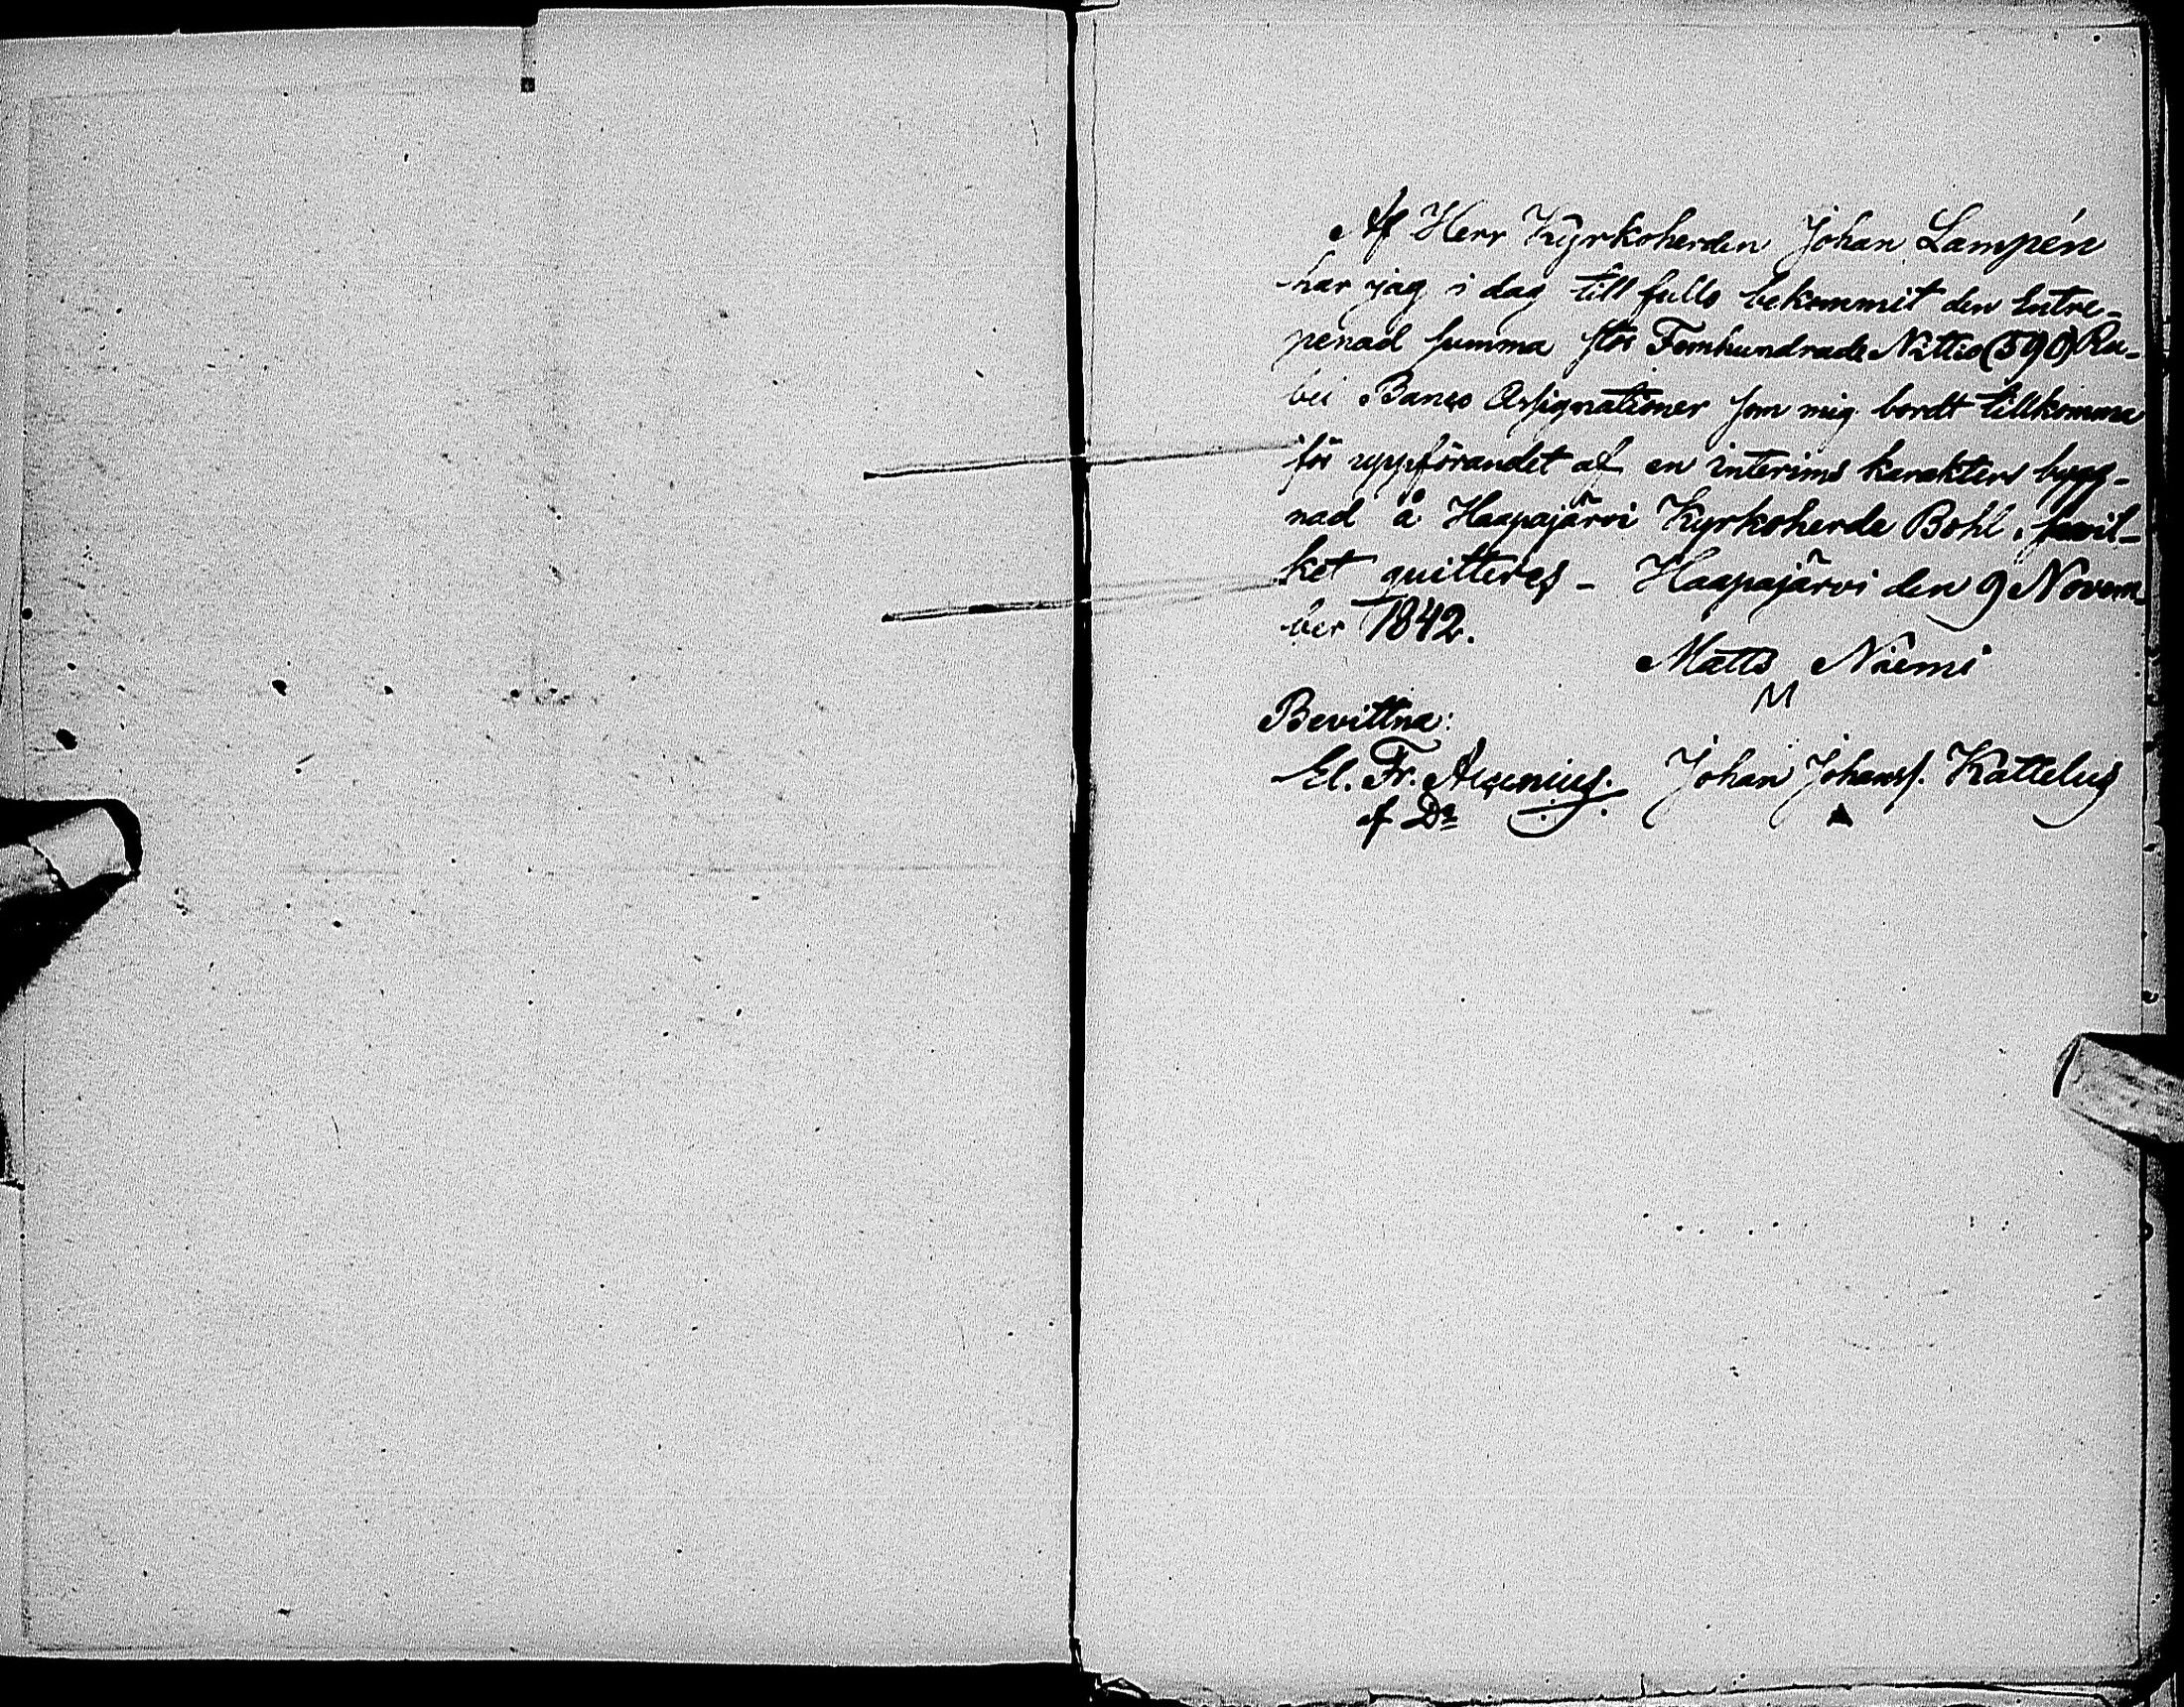 Af Herr Kyrkoherden Johan Lampén
har jag i dag till fullo bekommit den Entre-
penad summa stor Femhundrade Nittio (590) Ru-
bel Banco Assignationer som mig bordt tillkomma
för uppförandet af en interims karakters bygg-
nad å Haapajärvi Kyrkoherde Bohl, hvil-
ket quitteras – Haapajärvi den 9 Novem-
ber 1842.
Matts Niemi
M
Bevittna:
El. Fr. Johan Johanss. Kattelus
af Dn